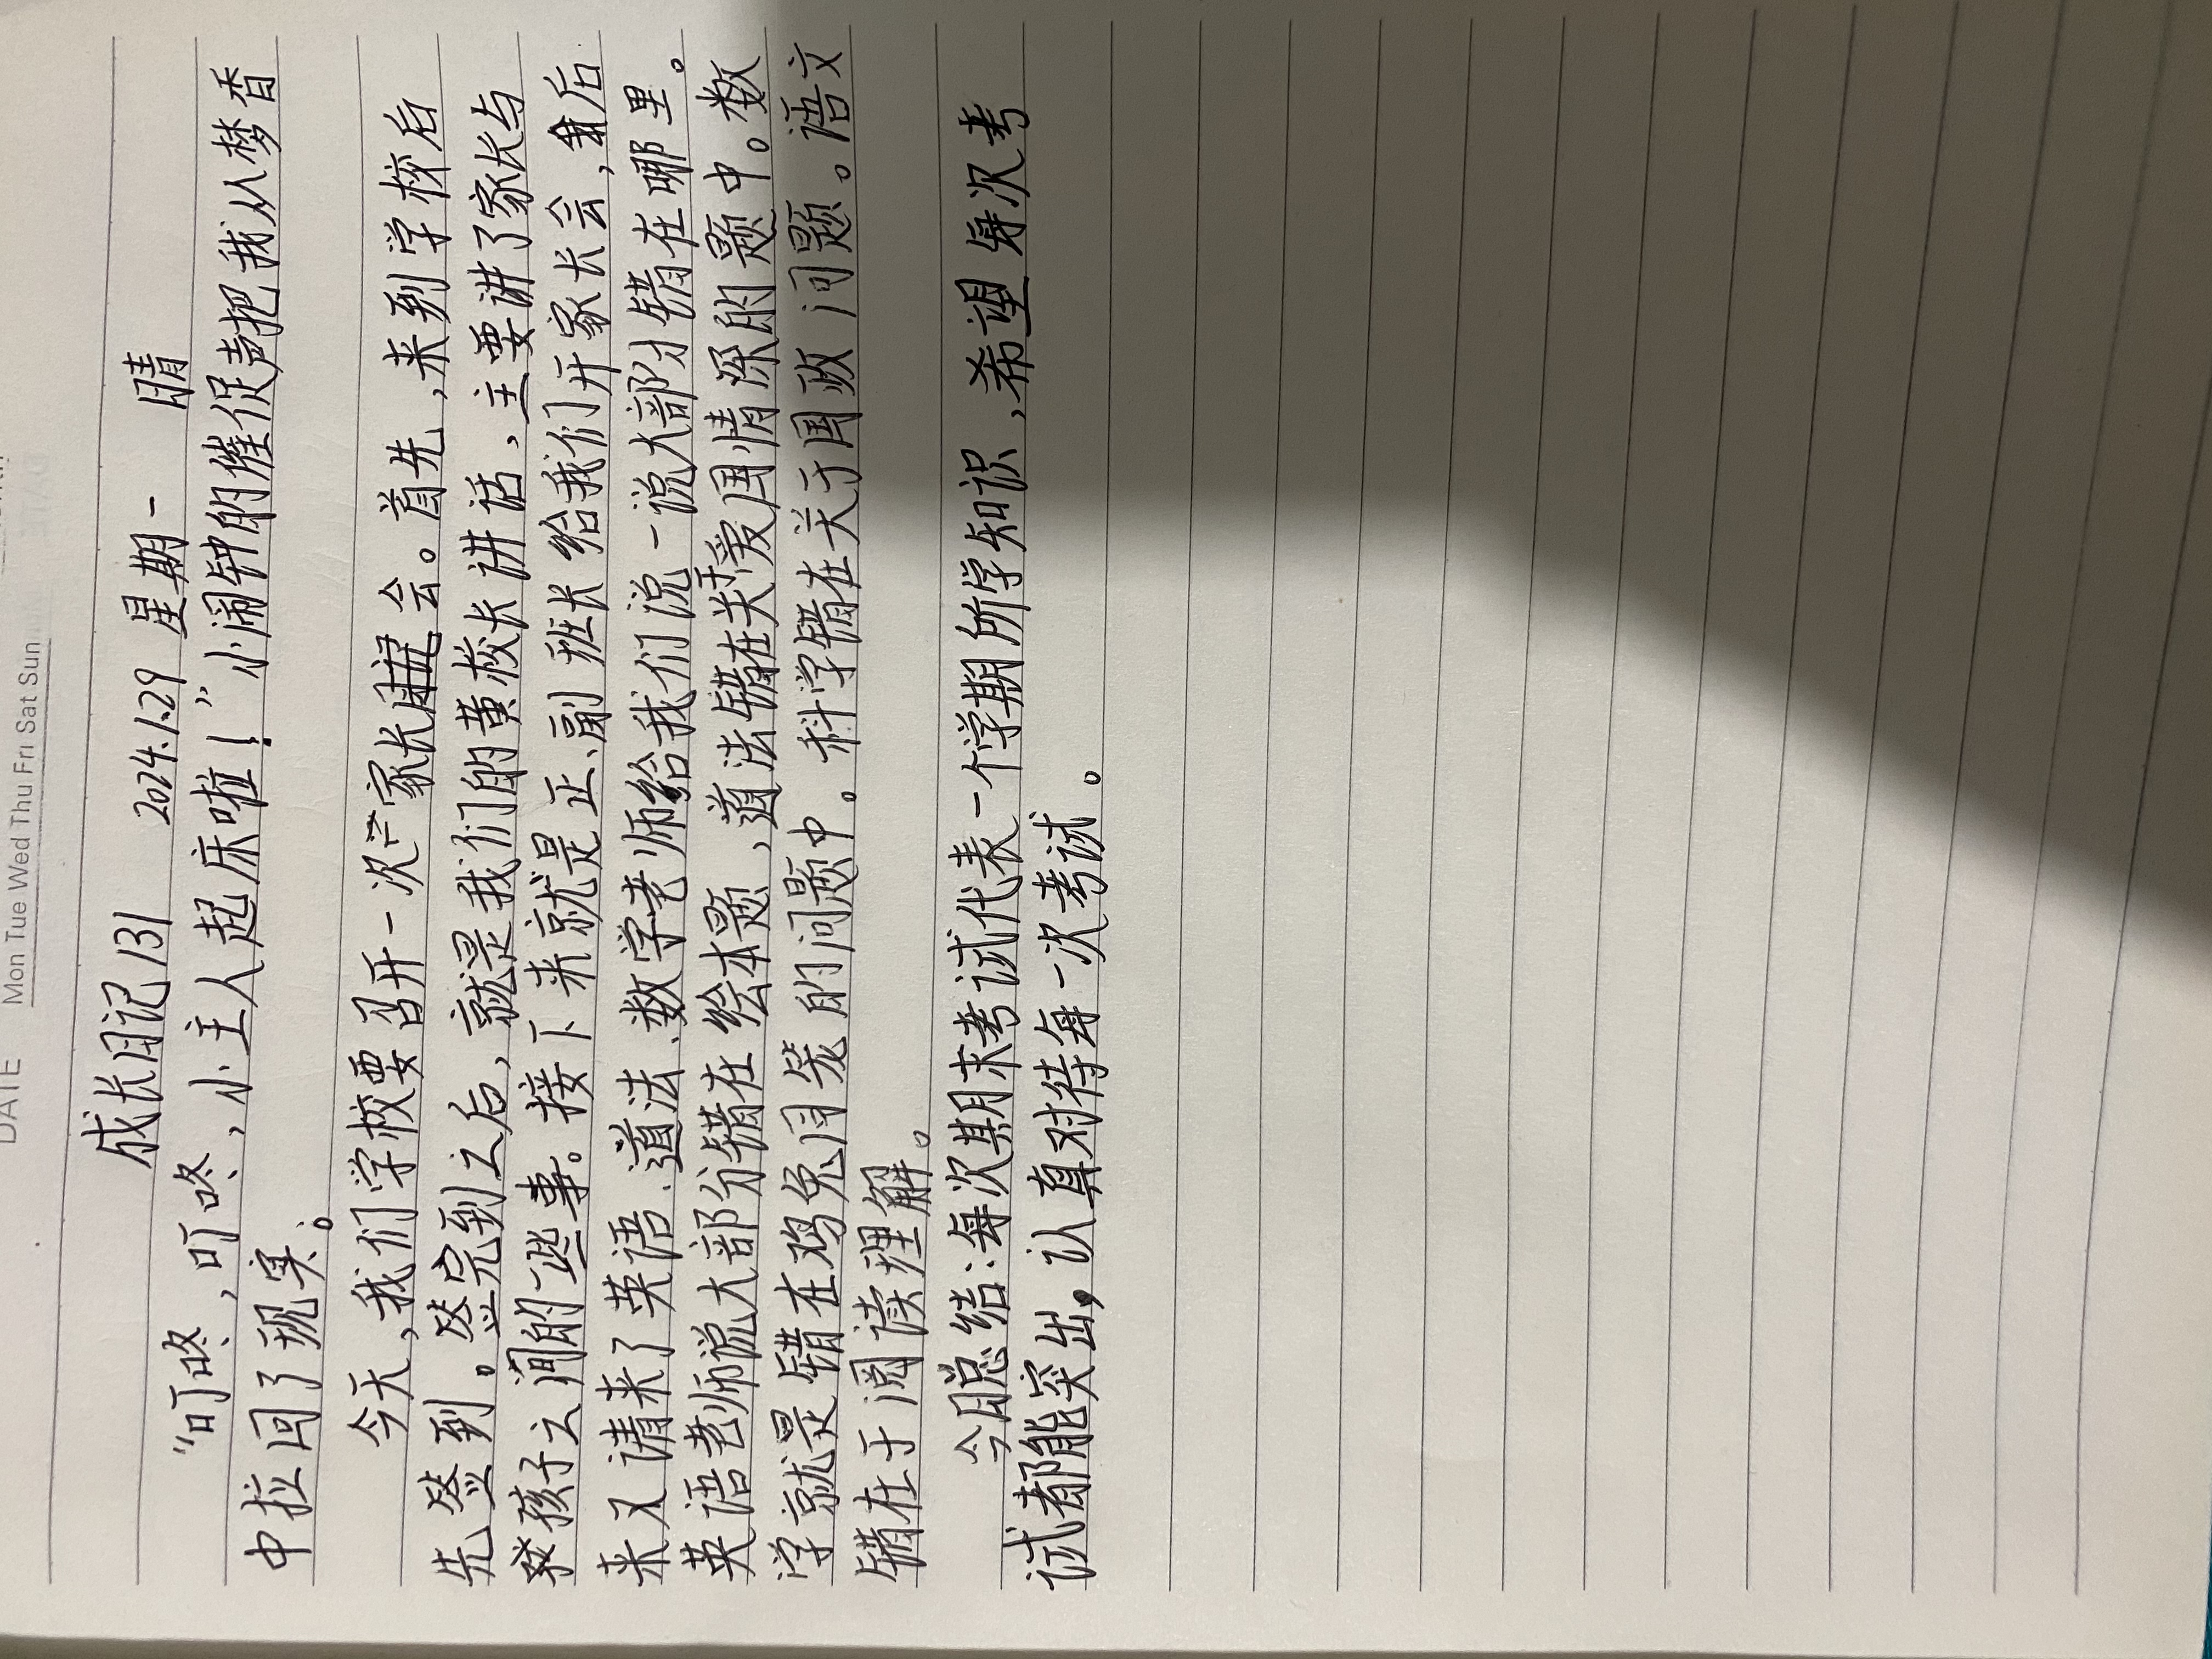 DATE Mon Tue Wed Thu Fri Sat Sun
成长日记131 2024.1.29 星期一 晴
“叮咚，叮咚，小主人起床啦！”小闹钟的催促声把我从梦香
中拉回了现实。
今天，我们学校要召开一次家长会。首先，来到学校后
先签到。签完到之后，就是我们的黄校长讲话，主要讲了家长与
孩子之间的一些事。接下来就是正、副班长给我们开家长会，后
来又请来了英语、道法、数学老师给我们说一说大部分错在哪里。
英语老师说大部分错在绘本题，道法错在关乎爱国情深的题中。数
学就是错在鸡兔同笼的问题中。科学错在关于国政问题。语文
错在于阅读理解。
今日总结：每次期末考试代表一个学期所学知识，希望每次考
试都能突出，认真对待每一次考试。